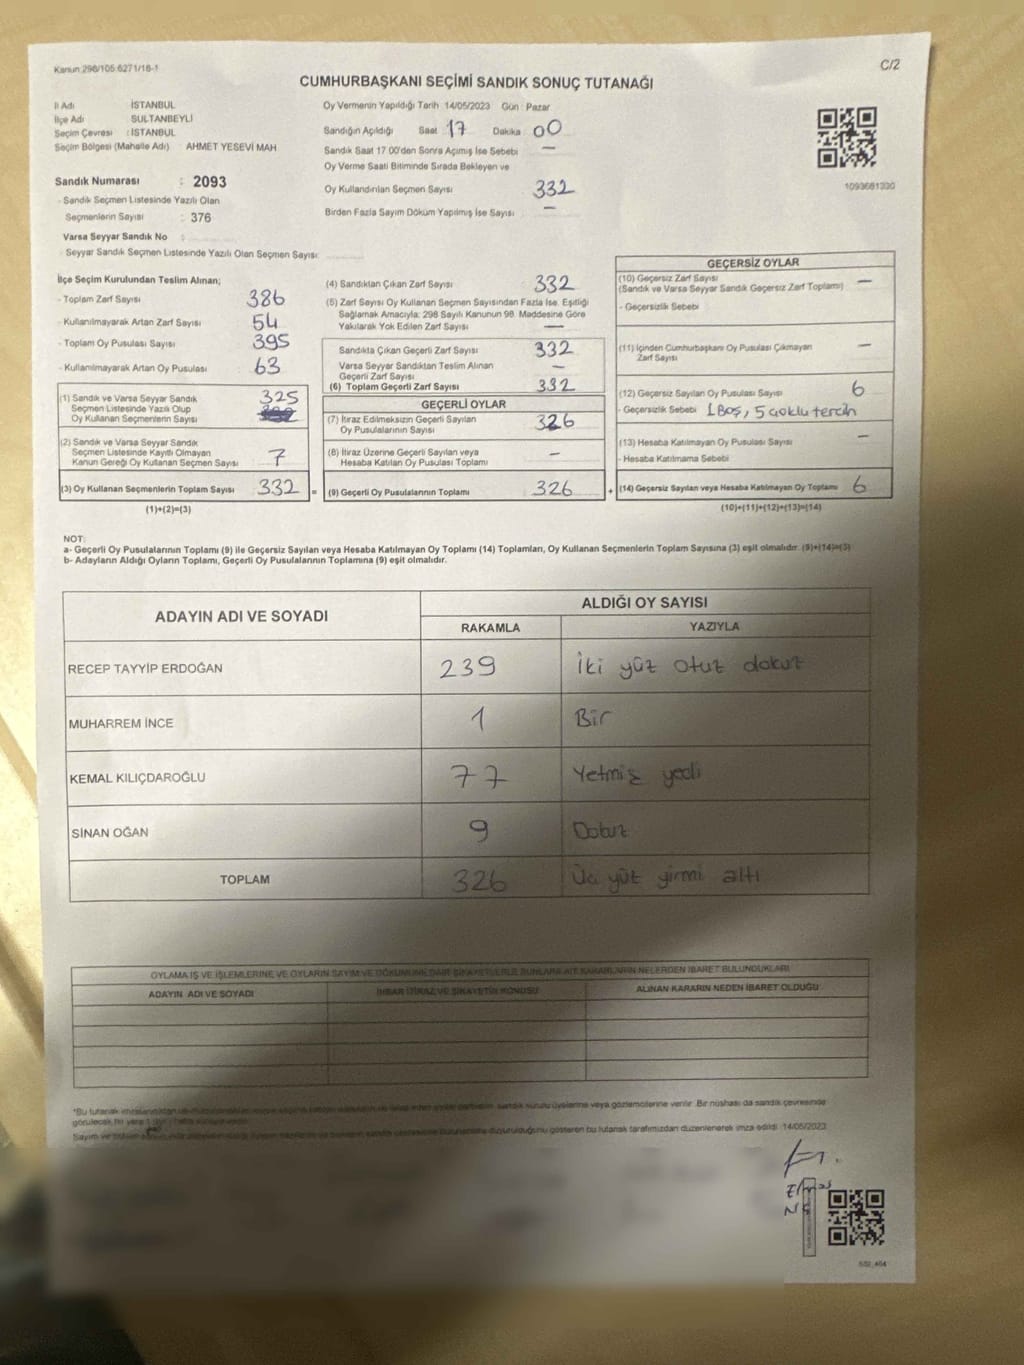 Kanun:298/105:6271/18-1
C/2
CUMHURBAŞKANI SEÇİMİ SANDIK SONUÇ TUTANAĞI
İl Adı İSTANBUL
İlçe Adı SULTANBEYLİ
Seçim Çevresi : İSTANBUL
Seçim Bölgesi (Mahalle Adı) AHMET YESEVİ MAH
Sandık Numarası : 2093
- Sandık Seçmen Listesinde Yazılı Olan
Seçmenlerin Sayısı : 376
Varsa Seyyar Sandık No :
- Seyyar Sandık Seçmen Listesinde Yazılı Olan Seçmen Sayısı:
Oy Vermenin Yapıldığı Tarih 14/05/2023 Gün : Pazar
Sandığın Açıldığı Saat 17 Dakika 00
Sandık Saat 17.00'den Sonra Açımış İse Sebebi —
Oy Verme Saati Bitiminde Sırada Bekleyen ve
Oy Kullandırılan Seçmen Sayısı 332
Birden Fazla Sayım Döküm Yapılmış İse Sayısı : —
1093681330
İlçe Seçim Kurulundan Teslim Alınan;
- Toplam Zarf Sayısı 386
- Kullanılmayarak Artan Zarf Sayısı 54
- Toplam Oy Pusulası Sayısı 395
- Kullanılmayarak Artan Oy Pusulası 63
(1) Sandık ve Varsa Seyyar Sandık 325
Seçmen Listesinde Yazılı Olup
Oy Kullanan Seçmenlerin Sayısı
(2) Sandık ve Varsa Seyyar Sandık
Seçmen Listesinde Kayıtlı Olmayan
Kanun Gereği Oy Kullanan Seçmen Sayısı 7
(3) Oy Kullanan Seçmenlerin Toplam Sayısı 332 =
(1)+(2)=(3)
(4) Sandıktan Çıkan Zarf Sayısı : 332
(5) Zarf Sayısı Oy Kullanan Seçmen Sayısından Fazla İse, Eşitliği
Sağlamak Amacıyla; 298 Sayılı Kanunun 98. Maddesine Göre
Yakılarak Yok Edilen Zarf Sayısı —
Sandıkta Çıkan Geçerli Zarf Sayısı 332
Varsa Seyyar Sandıktan Teslim Alınan
Geçerli Zarf Sayısı —
(6) Toplam Geçerli Zarf Sayısı 332
GEÇERLİ OYLAR
(7) İtiraz Edilmeksizin Geçerli Sayılan
Oy Pusulalarının Sayısı 326
(8) İtiraz Üzerine Geçerli Sayılan veya
Hesaba Katılan Oy Pusulası Toplamı —
(9) Geçerli Oy Pusulalarının Toplamı 326 +
GEÇERSİZ OYLAR
(10) Geçersiz Zarf Sayısı —
(Sandık ve Varsa Seyyar Sandık Geçersiz Zarf Toplamı)
- Geçersizlik Sebebi
(11) İçinden Cumhurbaşkanı Oy Pusulası Çıkmayan
Zarf Sayısı —
(12) Geçersiz Sayılan Oy Pusulası Sayısı 6
- Geçersizlik Sebebi 1 Boş, 5 çoklu tercih
(13) Hesaba Katılmayan Oy Pusulası Sayısı —
- Hesaba Katılmama Sebebi
(14) Geçersiz Sayılan veya Hesaba Katılmayan Oy Toplamı 6
(10)+(11)+(12)+(13)=(14)
NOT:
a- Geçerli Oy Pusulalarının Toplamı (9) ile Geçersiz Sayılan veya Hesaba Katılmayan Oy Toplamı (14) Toplamları, Oy Kullanan Seçmenlerin Toplam Sayısına (3) eşit olmalıdır. (9)+(14)=(3)
b- Adayların Aldığı Oyların Toplamı, Geçerli Oy Pusulalarının Toplamına (9) eşit olmalıdır.
ADAYIN ADI VE SOYADI
ALDIĞI OY SAYISI
RAKAMLA YAZIYLA
RECEP TAYYİP ERDOĞAN 239 İki yüz otuz dokuz
MUHARREM İNCE 1 Bir
KEMAL KILIÇDAROĞLU 77 Yetmiş yedi
SİNAN OĞAN 9 Dokuz
TOPLAM 326 Üç yüz yirmi altı
OYLAMA İŞ VE İŞLEMLERİNE VE OYLARIN SAYIM VE DÖKÜMÜNE DAİR ŞİKAYETLERLE BUNLARA AİT KARARLARIN NELERDEN İBARET BULUNDUKLARI
ADAYIN ADI VE SOYADI
İHBAR İTİRAZ VE ŞİKAYETİN KONUSU
ALINAN KARARIN NEDEN İBARET OLDUĞU
sandık kurulu üyelerine veya gözlemcilerine verilir. Bir nüshası da sandık çevresinde
duyurulduğunu gösteren bu tutanak tarafımızdan düzenlenerek imza edildi. 14/05/2023